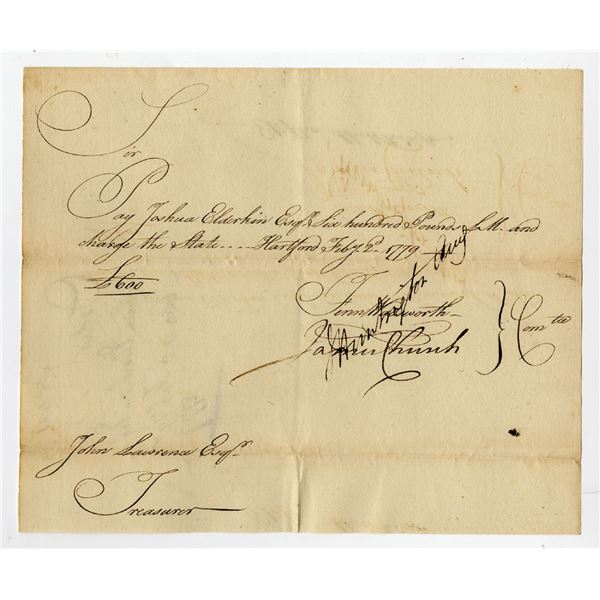 Sir
Pay Joshua Elderkin Esqr. Six hundred Pounds LM. and
charge the State .... Hartford Feby. 2d. 1779
£600
Fenn Wadsworth
James Church
} Comtee
John Lawrence Esqr.
Treasurer